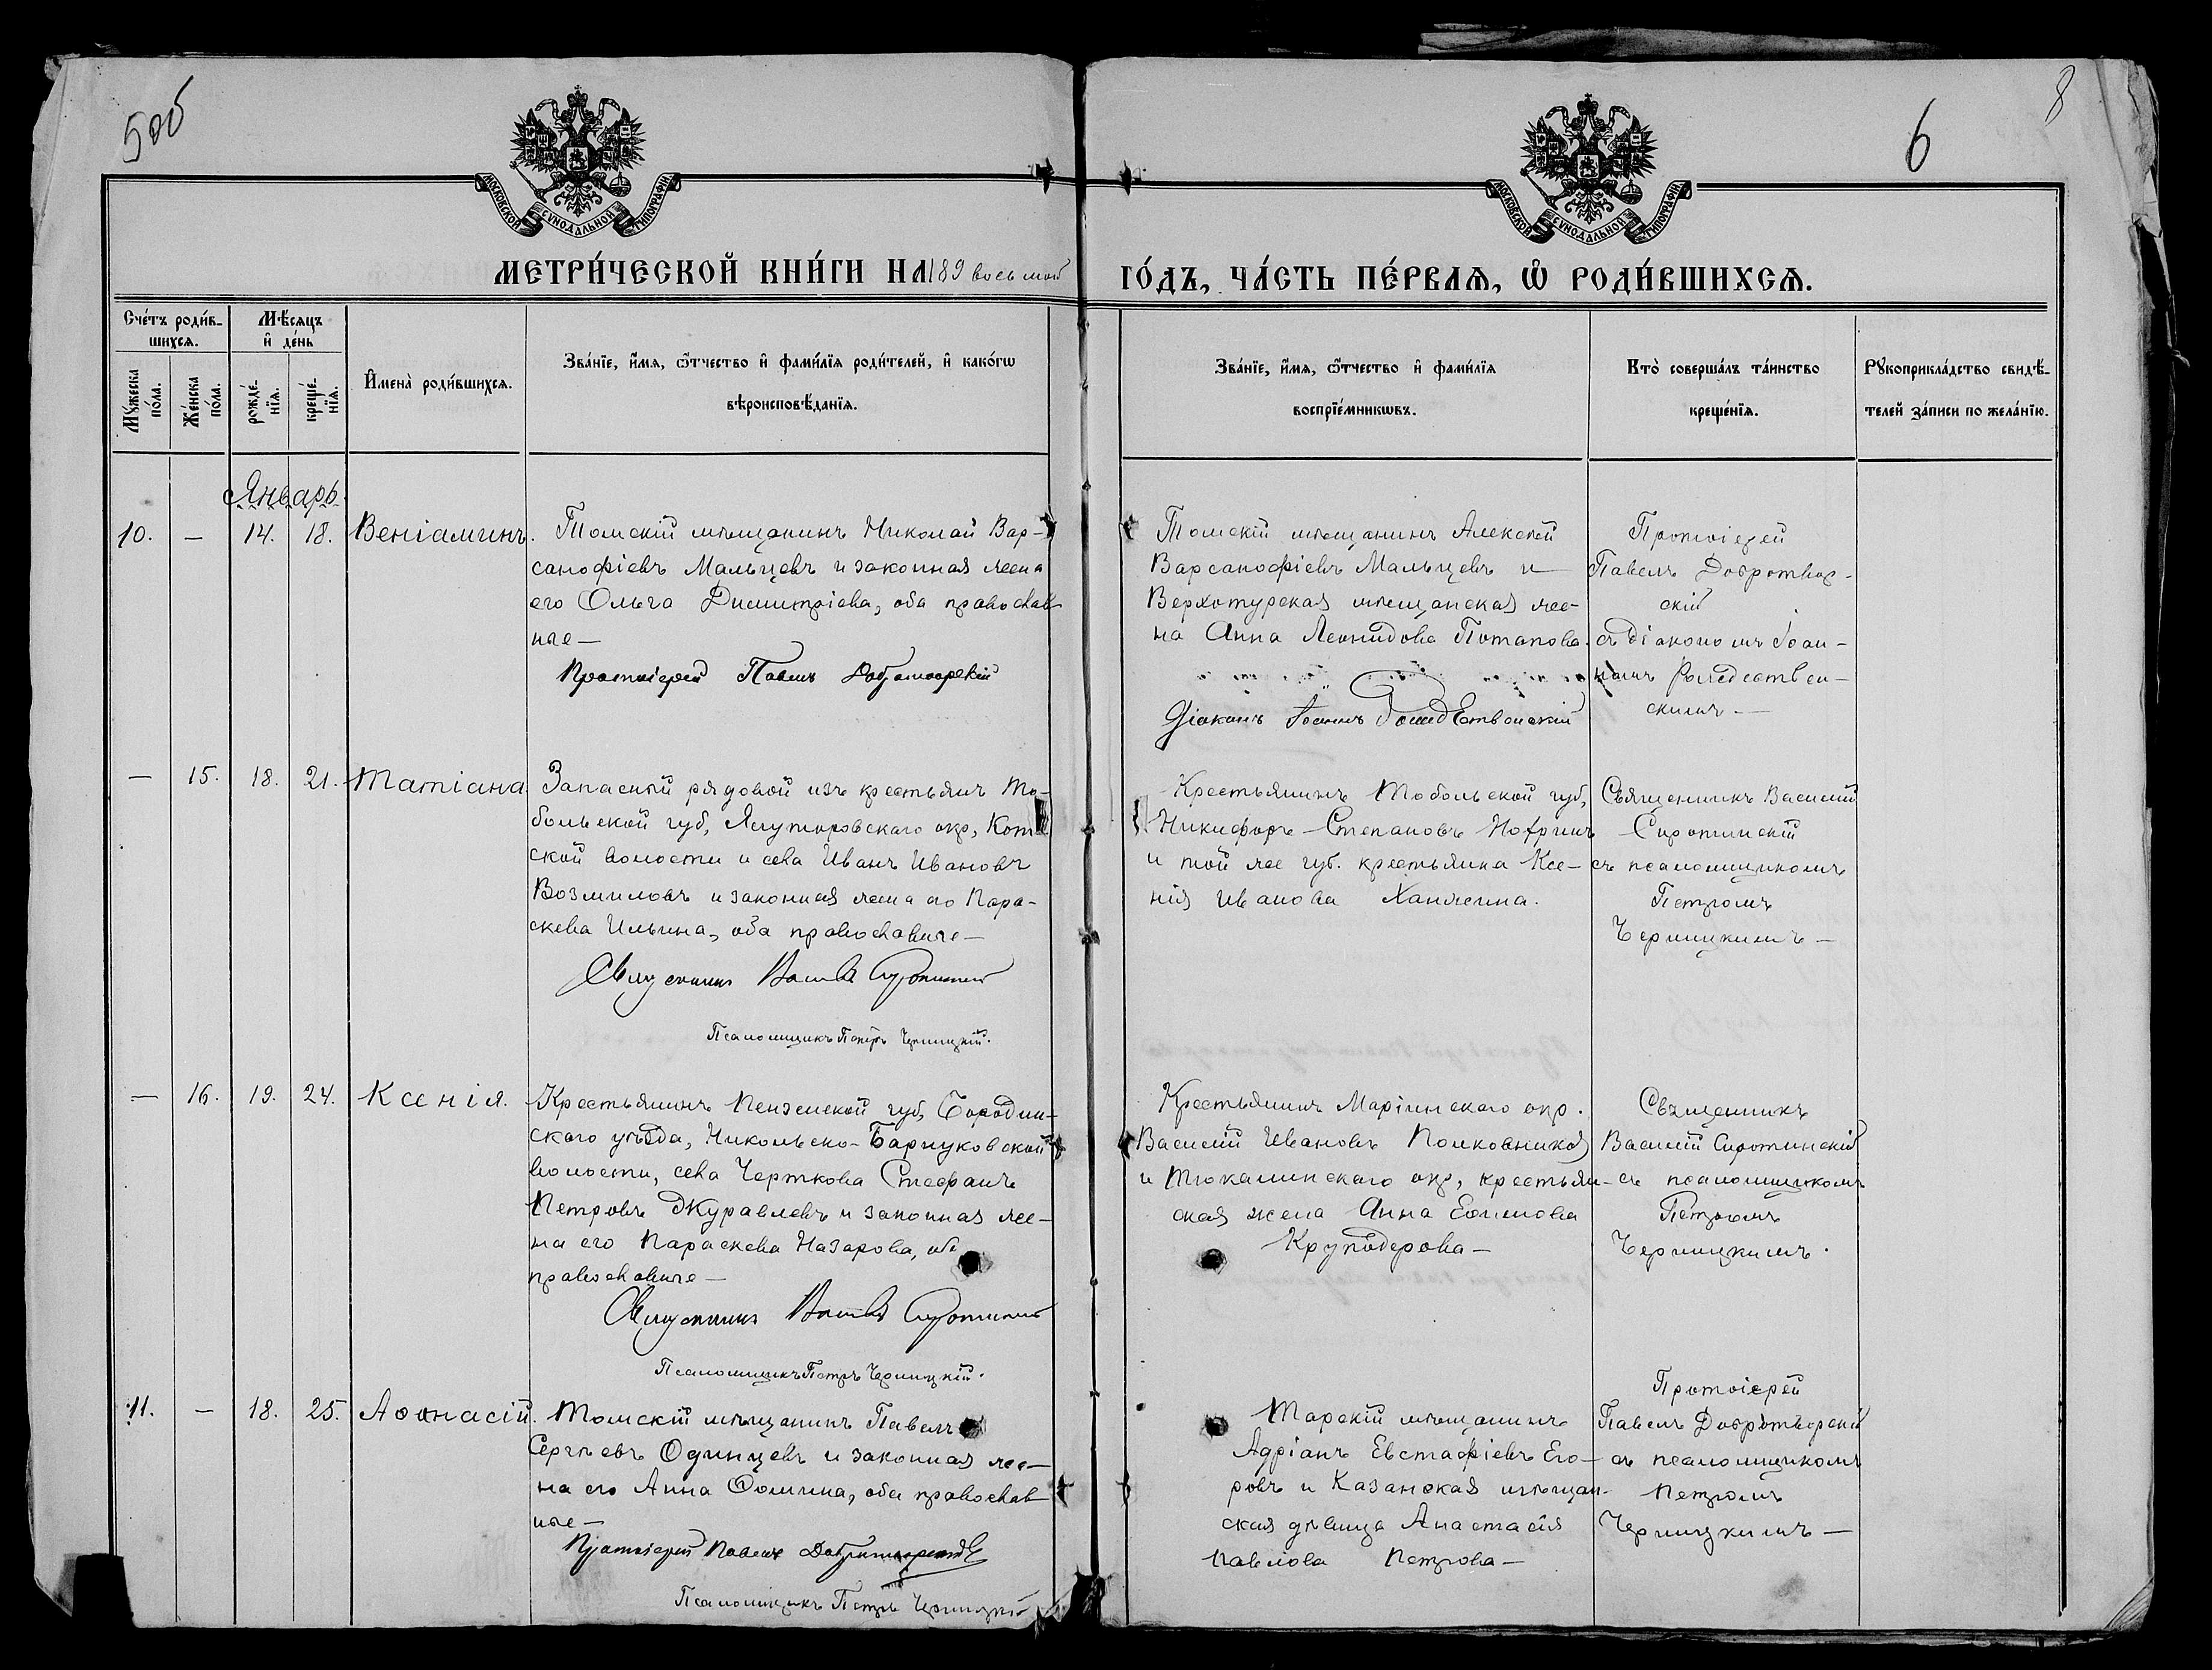 5об
6
8
МОСКОВСКОЙ СѴНОДАЛЬНОЙ ТИПОГРАФІИ
МОСКОВСКОЙ СѴНОДАЛЬНОЙ ТИПОГРАФІИ
МЕТРИ́ЧЕСКОЙ КНИ́ГИ НА 189 восьмой ГО́ДЪ, ЧА́СТЬ ПЕ́РВАЯ, Ѡ҆ РОДИ́ВШИХСЯ.
Сче́тъ роди́в-
шихся.
Мѣ́сяцъ
и҆ де́нь
Мꙋ́жеска
по́ла.
Же́нска
по́ла.
рожде́-
нїя.
креще́-
нїя.
И҆мена̀ роди́вшихся.
Зва́нїе, и҆́мя, ѻ҆́тчество и҆ фами́лїя роди́телей, и҆ како́гѡ
вѣроисповѣ́данїя.
Зва́нїе, и҆́мя, ѻ҆́тчество и҆ фами́лїя
воспрїе́мникѡвъ.
Кто̀ соверша́лъ та́инство
креще́нїя.
Рꙋкоприкла́дство свидѣ́-
телей за́писи по жела́нїю.
Январь.
10. — 14. 18. Веніаминъ.
Томскій мѣщанинъ Николай Вар-
санофіевъ Мальцевъ и законная жена
его Ольга Димитріева, оба православ
ные —
Протоіерей Павелъ Добротворскій
Томскій мѣщанинъ Алексѣй
Варсанофіевъ Мальцевъ и
Верхотурская мѣщанская же-
на Анна Леонидова Потапова.
Діаконъ Іоаннъ Рождественскій
Протоіерей
Павелъ Добротвор-
скій
съ діакономъ Іоан-
номъ Рождествен-
скимъ —
— 15. 18. 21. Татіана
Запасной рядовой изъ крестьянъ То-
больской губ, Ялуторовскаго окр, Кот
ской волости и села Иванъ Ивановъ
Возмиловъ и законная жена его Пара-
скева Ильина, оба православные —
Священникъ Василій Сиротинскій
Псаломщикъ Петръ Черницкій.
Крестьянинъ Тобольской губ,
Никифоръ Степановъ
и той же губ. крестьянка Ксе-
нія Иванова
Священникъ Василій
Сиротинскій
съ псаломщикомъ
Петромъ
Черницкимъ —
— 16. 19. 24. Ксенія.
Крестьянинъ Пензенской губ, Городи-
скаго уѣзда, Никольско-Барнуковской
волости, села Черткова Стефанъ
Петровъ Журавлевъ и законная же-
на его Параскева Назарова, оба
православные —
Священникъ Василій Сиротинскій
Псаломщикъ Петръ Черницкій.
Крестьянинъ Маріинскаго окр.
Василій Ивановъ Полковников
и Тюкалинскаго окр, крестьян-
ская жена Анна Ефимова
Круподерова —
Священникъ
Василій Сиротинскій
съ псаломщикомъ
Петромъ
Черницкимъ.
11. — 18. 25. Аѳанасій.
Томскій мѣщанинъ Павелъ
Сергѣевъ Одинцевъ и законная же-
на его Анна Ѳомина, оба православ
ные —
Протоіерей Павелъ Добротворскій
Псаломщикъ Петръ Черницкій
Тарскій мѣщанинъ
Адріанъ Евстафіевъ Его-
ровъ и Казанская мѣщан-
ская дѣвица Анастасія
Павлова Петрова —
Протоіерей
Павелъ Добротворскій
съ псаломщикомъ
Петромъ
Черницкимъ —